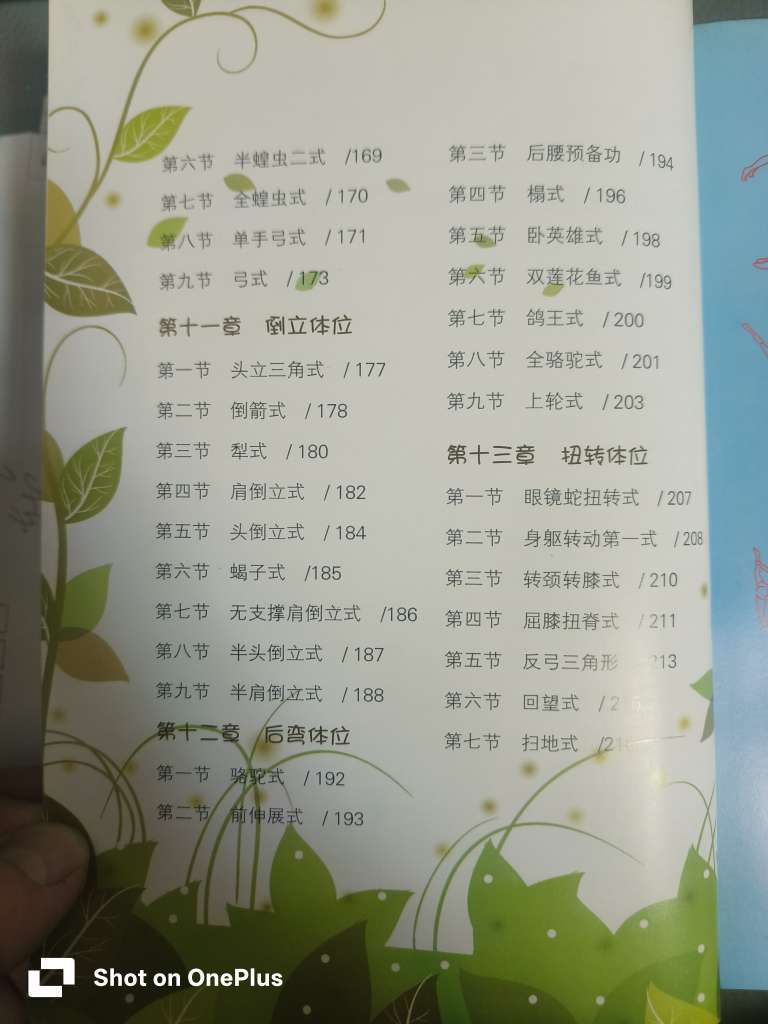 第六节 半蝗虫二式 /169
第七节 全蝗虫式 / 170
第八节 单手弓式 / 171
第九节 弓式 / 173
第十一章 倒立体位
第一节 头立三角式 / 177
第二节 倒箭式 / 178
第三节 犁式 / 180
第四节 肩倒立式 / 182
第五节 头倒立式 / 184
第六节 蝎子式 /185
第七节 无支撑肩倒立式 /186
第八节 半头倒立式 / 187
第九节 半肩倒立式 / 188
第十二章 后弯体位
第一节 骆驼式 / 192
第二节 前伸展式 / 193
第三节 后腰预备功 / 194
第四节 榻式 / 196
第五节 卧英雄式 / 198
第六节 双莲花鱼式 /199
第七节 鸽王式 / 200
第八节 全骆驼式 / 201
第九节 上轮式 / 203
第十三章 扭转体位
第一节 眼镜蛇扭转式 / 207
第二节 身躯转动第一式 / 208
第三节 转颈转膝式 / 210
第四节 屈膝扭脊式 / 211
第五节 反弓三角形 213
第六节 回望式 /
第七节 扫地式 /
Shot on OnePlus